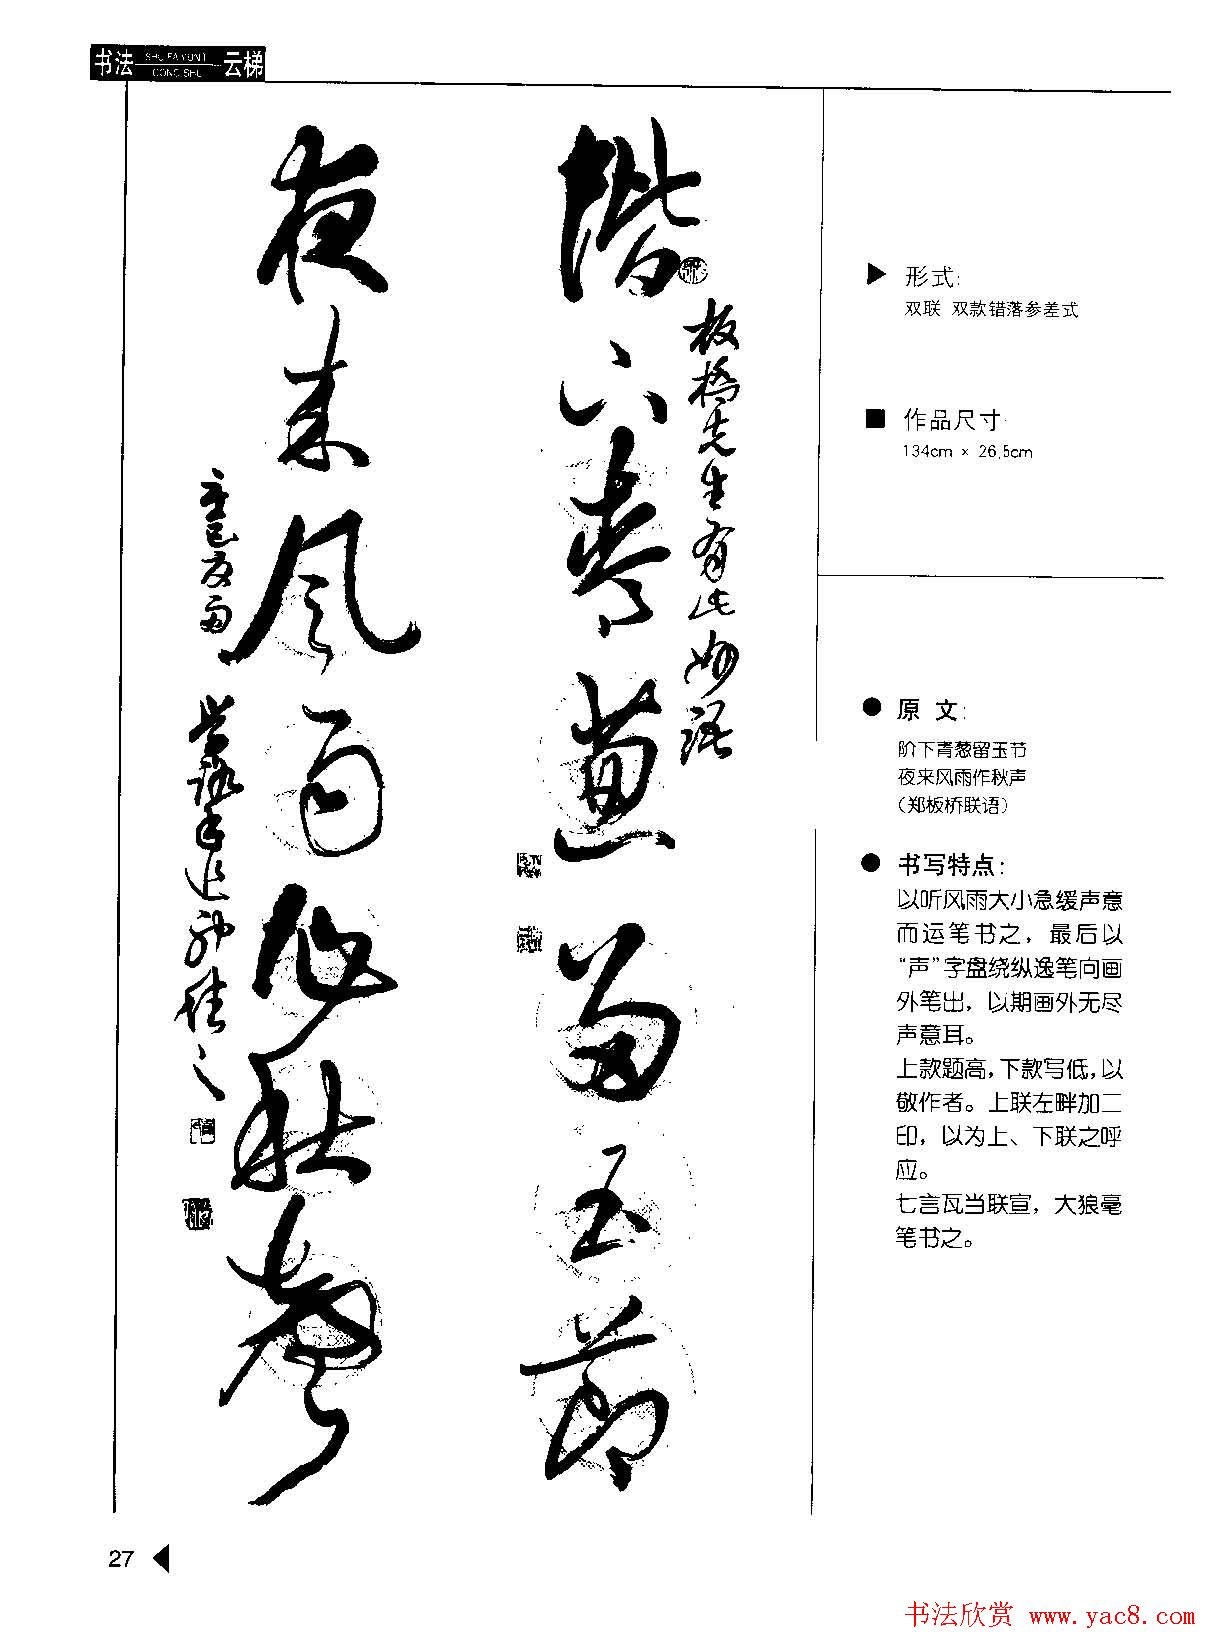 书法 SHU FA YUN TI CONG SHU 云梯
階下青蔥留玉節
板橋先生有此妙語
夜来风雨作秋聲
▶ 形式:
双联 双款错落参差式
■ 作品尺寸
134cm × 26.5cm
● 原 文:
阶下青葱留玉节
夜来风雨作秋声
(郑板桥联语)
● 书写特点:
以听风雨大小急缓声意
而运笔书之，最后以
“声”字盘绕纵逸笔向画
外笔出，以期画外无尽
声意耳。
上款题高，下款写低，以
敬作者。上联左畔加二
印，以为上、下联之呼
应。
七言瓦当联宣，大狼毫
笔书之。
27
书法欣赏 www.yac8.com